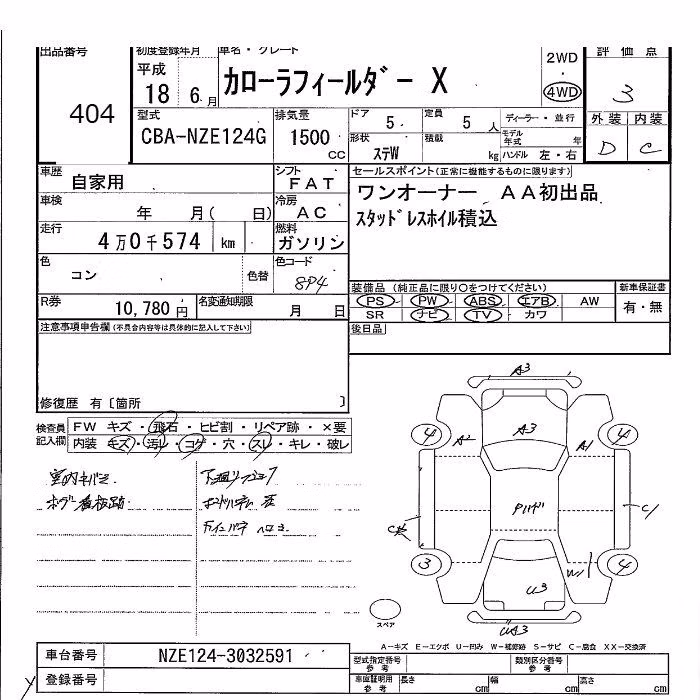 出品番号 初度登録年月 車名・グレード 2WD 評価点
404 平成 18 6 月 カローラフィールダー X ・ 4WD 3
型式 排気量 ドア 定員 ディーラー・並行 外装 内装
CBA-NZE124G 1500 cc 5 5 人 モデル年式 年 D C
形状 ステW 積載 kg ハンドル 左・右
車歴 自家用 シフト FAT セールスポイント(正常に機能するものに限ります)
車検 年 月( 日) 冷房 AC ワンオーナー AA初出品
走行 4万0千574 km 燃料 ガソリン スタッドレスホイル積込
色 コン 色替 色コード 8P4 装備品(純正品に限り○をつけてください) 新車保証書
R券 10,780円 名変通知期限 月 日 PS PW ABS エアB AW 有・無
SR ナビ TV カワ
注意事項申告欄(不具合内容等は具体的に記入して下さい) 後日品
修復歴 有〔箇所 〕
検査員記入欄 FW キズ・飛石・ヒビ割・リペア跡・×要
内装 キズ・汚れ・コゲ・穴・スレ・キレ・破レ
室内キバミ
ボデー看板跡
A3
A3
4 A2 A1 4
C 
C1
3 W1 4
U3
UA3
スペア
A-キズ E-エクボ U-凹み W-補修跡 S-サビ C-腐食 XX-交換済
車台番号 NZE124-3032591 型式指定番号 参考 類別区分番号 参考
登録番号 車庫証明用 参考 長さ cm 幅 cm 高さ cm